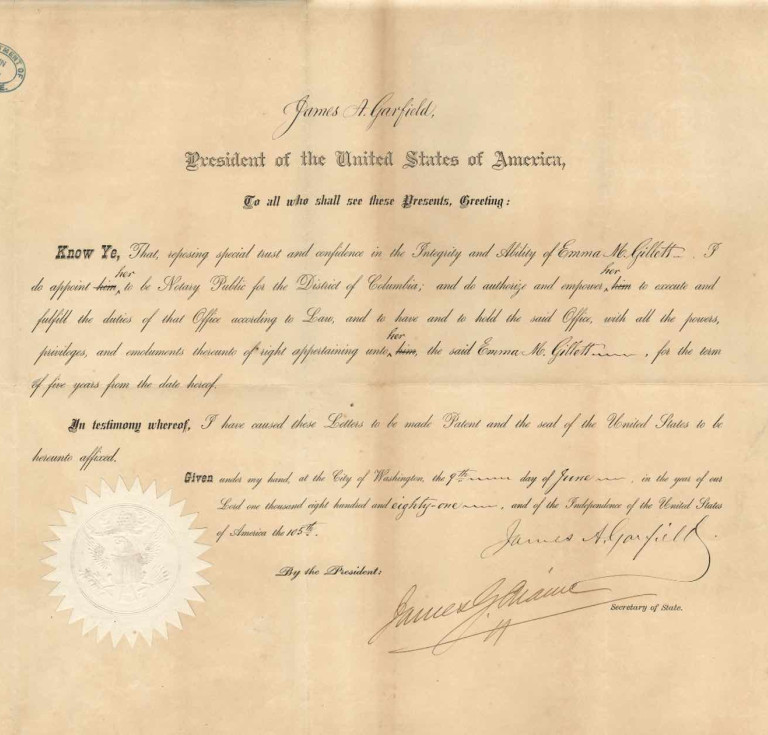 James A. Garfield,
President of the United States of America,
To all who shall see these Presents, Greeting:
Know Ye, That, reposing special trust and confidence in the Integrity and Ability of Emma M. Gillett . I
do appoint him her to be Notary Public for the District of Columbia; and do authorize and empower her him to execute and
fulfill the duties of that Office according to Law, and to have and to hold the said Office, with all the powers,
privileges, and emoluments thereunto of right appertaining unto her him, the said Emma M. Gillett , for the term
of five years from the date hereof.
In testimony whereof, I have caused these Letters to be made Patent and the seal of the United States to be
hereunto affixed.
Given under my hand, at the City of Washington, the 9th day of June , in the year of our
Lord one thousand eight hundred and eighty-one , and of the Independence of the United States
of America the 105th.
James A. Garfield
By the President:
James G. Blaine
Secretary of State.